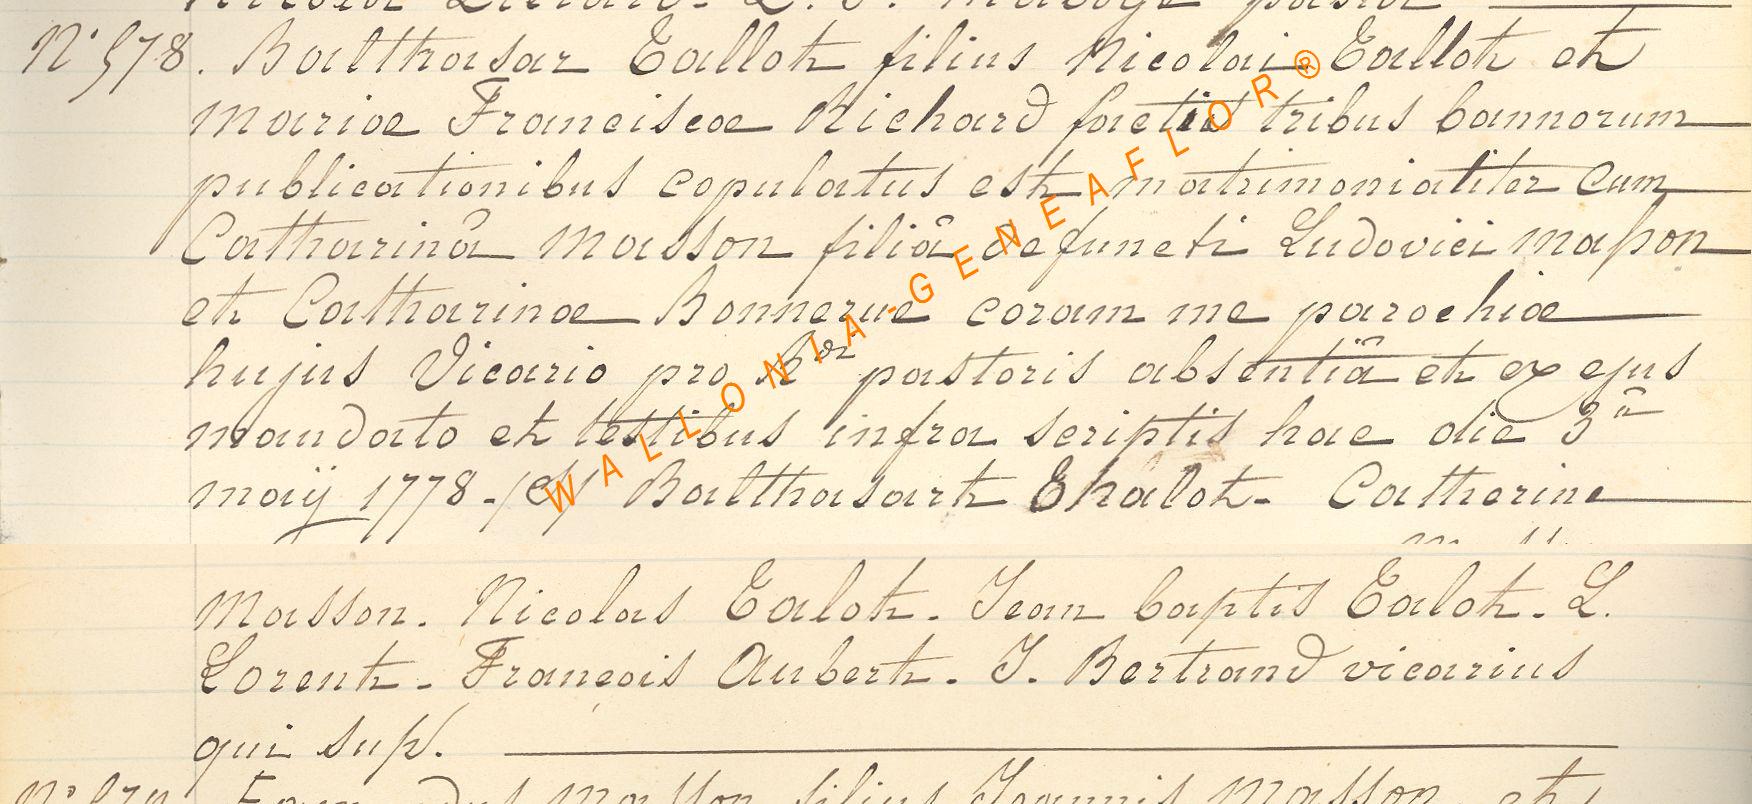 N° 578. Balthasar Eallot filius Nicolai Eallot et
mariae Franciscae Richard factis tribus bannorum
publicationibus copulatus est matrimonialiter cum
Catharinâ Masson filiâ defuncti Ludovici masson
et Catharinae Bonnerue coram me parochiae
hujus Vicario pro Ror pastoris absentiâ et ex ejus
mandato et testibus infra scriptis hac die 3â
maÿ 1778. Balthasart Ehalot. Catherine
Masson. Nicolas Ealot. Jean baptis Ealot. L.
Lorent. François Aubert. J. Bertrand vicarius
qui sup.
masson filius Joannis Masson et
WALLONIA-GENEAFLOR®